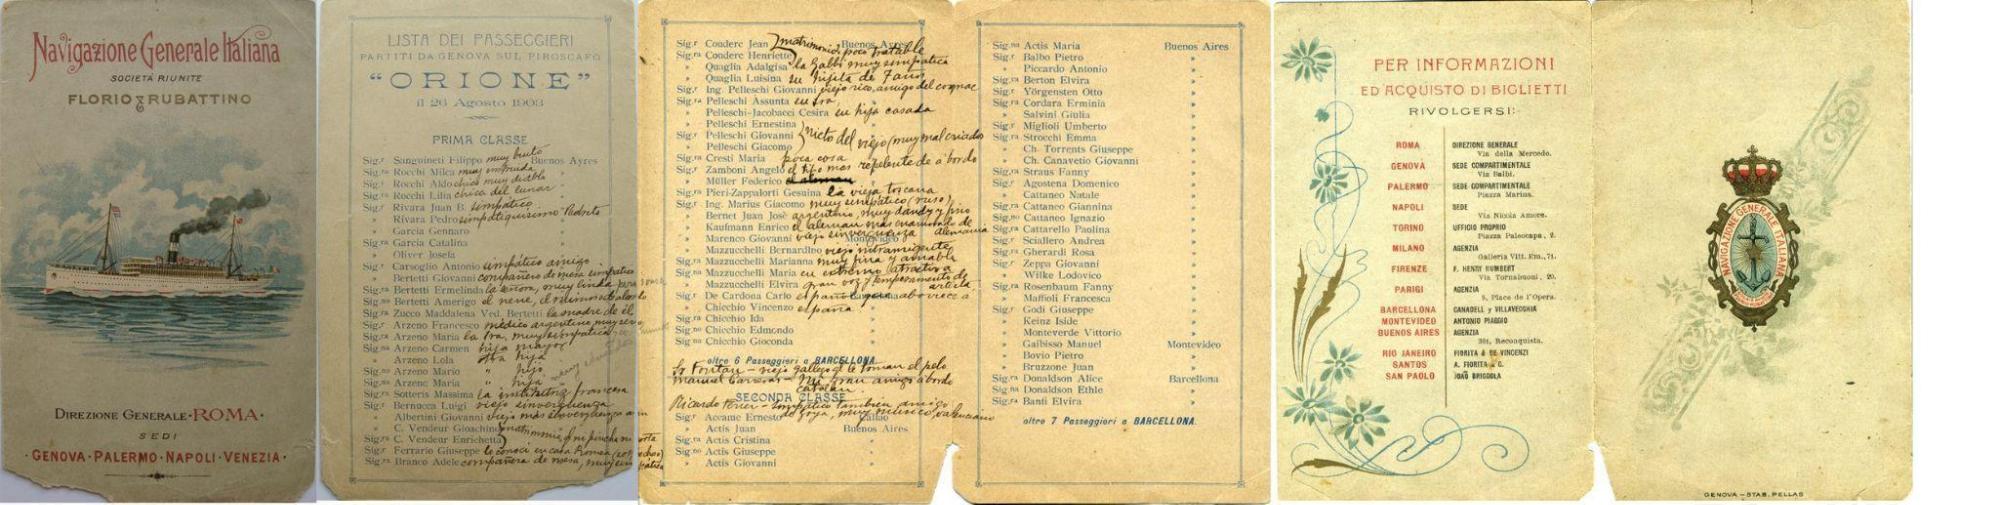 Navigazione Generale Italiana
SOCIETÀ RIUNITE
FLORIO & RUBATTINO
DIREZIONE GENERALE·ROMA·
SEDI
·GENOVA·PALERMO·NAPOLI·VENEZIA·
LISTA DEI PASSEGGIERI
PARTITI DA GENOVA SUL PIROSCAFO
"ORIONE"
il 26 Agosto 1903
PRIMA CLASSE
Sig.r Sanguineti Filippo muy bruto Buenos Ayres
Sig.ra Rocchi Milca muy instruida »
Sig.r Rocchi Aldo chico muy diablo »
Sig.na Rocchi Lilia chica del lunar »
Sig.r Rivara Juan B. simpatico »
» Rivara Pedro simpatiquisimo Pedrito
» Garcia Gennaro »
Sig.ra Garcia Catalina »
» Oliver Josefa »
Sig.r Carsoglio Antonio simpatico amigo
» Bertetti Giovanni compañero de mesa simpatico
Sig.ra Bertetti Ermelinda la señora, muy linda para
Sig.no Bertetti Amerigo el nene, el mimoso
Sig.ra Zucco Maddalena Ved. Bertetti la madre de él
Sig.r Arzeno Francesco médico argentino, muy serio
Sig.ra Arzeno Maria la Sra, muy simpatica
Sig.na Arzeno Carmen hija mayor
» Arzeno Lola otra hija
Sig.no Arzeno Mario " hijo
Sig.na Arzeno Maria " hija
Sig.ra Sotteris Massima la institutriz francesa
Sig.r Bernucca Luigi viejo sinvergüenza
» Albertini Giovanni viejo mas sinvergüenza aun
» C. Vendeur Gioachino matrimonio, q ni pincha ni corta
Sig.ra C. Vendeur Enrichetta
Sig.r Ferrario Giuseppe le conoci en casa
Sig.ra Branco Adele compañera de mesa, muy simpática
Sig.r Coudere Jean matrimonio poco tratable Buenos Ayres
Sig.ra Coudere Henriette
» Quaglia Adalgisa la Balbi muy simpatica
» Quaglia Luisina su hijita de 7 años
Sig.r Ing. Pelleschi Giovanni viejo rico, amigo del cognac
Sig.ra Pelleschi Assunta su sra,
» Pelleschi-Jacobacci Cesira su hija casada
» Pelleschi Ernestina
Sig.r Pelleschi Giovanni nietos del viejo (muy mal criados
» Pelleschi Giacomo
Sig.ra Cresti Maria poca cosa
Sig.r Zamboni Angelo el tipo mas repelente de a bordo
» Müller Federico el aleman
Sig.ra Pieri-Zappalorti Gesuina la vieja toscana
Sig.r Ing. Marius Giacomo muy simpatico (ruso)
» Bernet Juan Josè argentino, muy dandy y fino
» Kaufmann Enrico el aleman mas enamorado de Alemania
» Marenco Giovanni viejo sinvergüenza Montevideo
» Mazzucchelli Bernardino viejo intransigente
Sig.ra Mazzucchelli Marianna muy fina y amable
Sig.na Mazzucchelli Maria en extremo atractiva
» Mazzucchelli Elvira gran voz y temperamento de artista
Sig.r De Cardona Carlo español q aborrece a
» Chicchio Vincenzo españa
Sig.ra Chicchio Ida »
Sig.no Chicchio Edmondo »
Sig.na Chicchio Gioconda »
oltre 6 Passeggieri a BARCELLONA
Sr Fontan – viejo gallego q le toman el pelo
Manuel Carreras – Mi gran amigo a bordo
catalan
SECONDA CLASSE
Ricardo Ferrer – simpatico tambien amigo
Sig.r Accame Ernesto Callao
» Actis Juan Buenos Aires
Sig.ra Actis Cristina »
Sig.no Actis Giuseppe »
» Actis Giovanni »
Sig.na Actis Maria Buenos Aires
Sig.r Balbo Pietro »
» Piccardo Antonio »
Sig.ra Berton Elvira »
Sig.r Yörgensten Otto »
Sig.ra Cordara Erminia »
» Salvini Giulia »
Sig.r Miglioli Umberto »
Sig.ra Strocchi Emma »
» Ch. Torrents Giuseppe »
» Ch. Canavetio Giovanni »
Sig.ra Straus Fanny »
Sig.r Agostena Domenico »
» Cattaneo Natale »
Sig.ra Cattaneo Giannina »
Sig.no Cattaneo Ignazio »
Sig.ra Cattarello Paolina »
Sig.r Sciallero Andrea »
Sig.ra Gherardi Rosa »
Sig.r Zeppa Giovanni »
» Wilke Lodovico »
Sig.ra Rosenbaum Fanny »
» Maffioli Francesca »
Sig.r Godi Giuseppe »
» Keinz Iside »
» Monteverde Vittorio »
» Galbisso Manuel Montevideo
» Bovio Pietro »
» Bruzzone Juan »
Sig.ra Donaldson Alice Barcellona
Sig.na Donaldson Ethle »
Sig.ra Banti Elvira »
oltre 7 Passeggieri a BARCELLONA.
PER INFORMAZIONI
ED ACQUISTO DI BIGLIETTI
RIVOLGERSI:
ROMA DIREZIONE GENERALE
Via della Mercede.
GENOVA SEDE COMPARTIMENTALE
Via Balbi.
PALERMO SEDE COMPARTIMENTALE
Piazza Marina.
NAPOLI SEDE
Via Nicola Amore.
TORINO UFFICIO PROPRIO
Piazza Paleocapa, 2.
MILANO AGENZIA
Galleria Vitt. Em., 71.
FIRENZE F. HENRY HUMBERT
Via Tornabuoni, 20.
PARIGI AGENZIA
8, Place de l'Opera.
BARCELLONA CANADELL y VILLAVECCHIA
MONTEVIDEO ANTONIO PIAGGIO
BUENOS AIRES AGENZIA
301, Reconquista.
RIO JANEIRO FIORITA & DE VINCENZI
SANTOS A. FIORITA & C.
SAN PAOLO JOÃO BRICCOLA
NAVIGAZIONE GENERALE ITALIANA
GENOVA – STAB. PELLAS